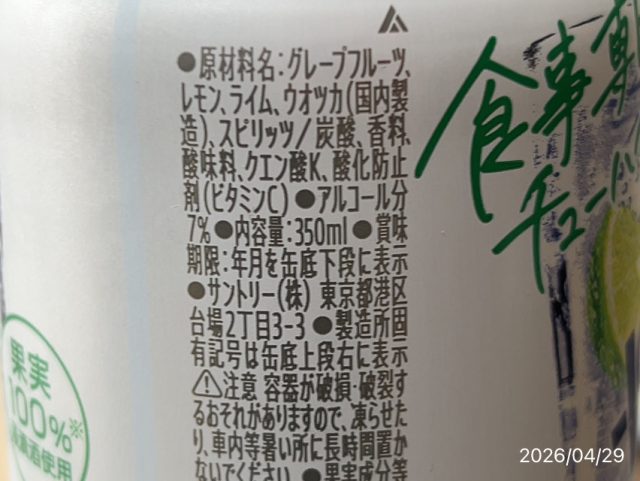 ●原材料名:グレープフルーツ、
レモン、ライム、ウオツカ(国内製
造)、スピリッツ/炭酸、香料、
酸味料、クエン酸K、酸化防止
剤(ビタミンC)●アルコール分
7%●内容量:350ml●賞味
期限:年月を缶底下段に表示
●サントリー(株) 東京都港区
台場2丁目3-3●製造所固
有記号は缶底上段右に表示
⚠注意 容器が破損・破裂す
るおそれがありますので、凍らせた
り、車内等暑い所に長時間置か
ないでください。●果実成分等
食事専
チューハイ
果実
100%※
浸漬酒使用
2026/04/29